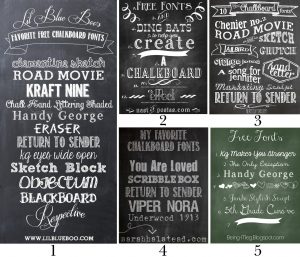 Lil Blue Boo's
FAVORITE FREE CHALKBOARD FONTS
clementine sketch
ROAD MOVIE
KRAFT NINE
Chalk Hand Lettering Shaded
Handy George
ERASER
RETURN TO SENDER
kg eyes wide open
Sketch Block
OBJECTUM
BLACKBOARD
Respective
WWW.LILBLUEBOO.COM
1
FREE FONTS
AND
DING BATS
to help you
create
A
CHALKBOARD
Effect
2
chalkboard fonts
ROAD MOVIE
sketch
JAILBIRD
a song for
jennifer
Marketing Script
RETURN TO SENDER
3
MY FAVORITE
CHALKBOARD FONTS
You Are Loved
SCRIBBLE BOX
RETURN TO SENDER
VIPER NORA
Underwood 1913
sarahhalstead.com
4
Free Fonts
Kg Makes You Stronger
The Only Exception
Handy George
Janda Stylish Script
5th Grade Cursive
Being-Meg.Blogspot.com
5